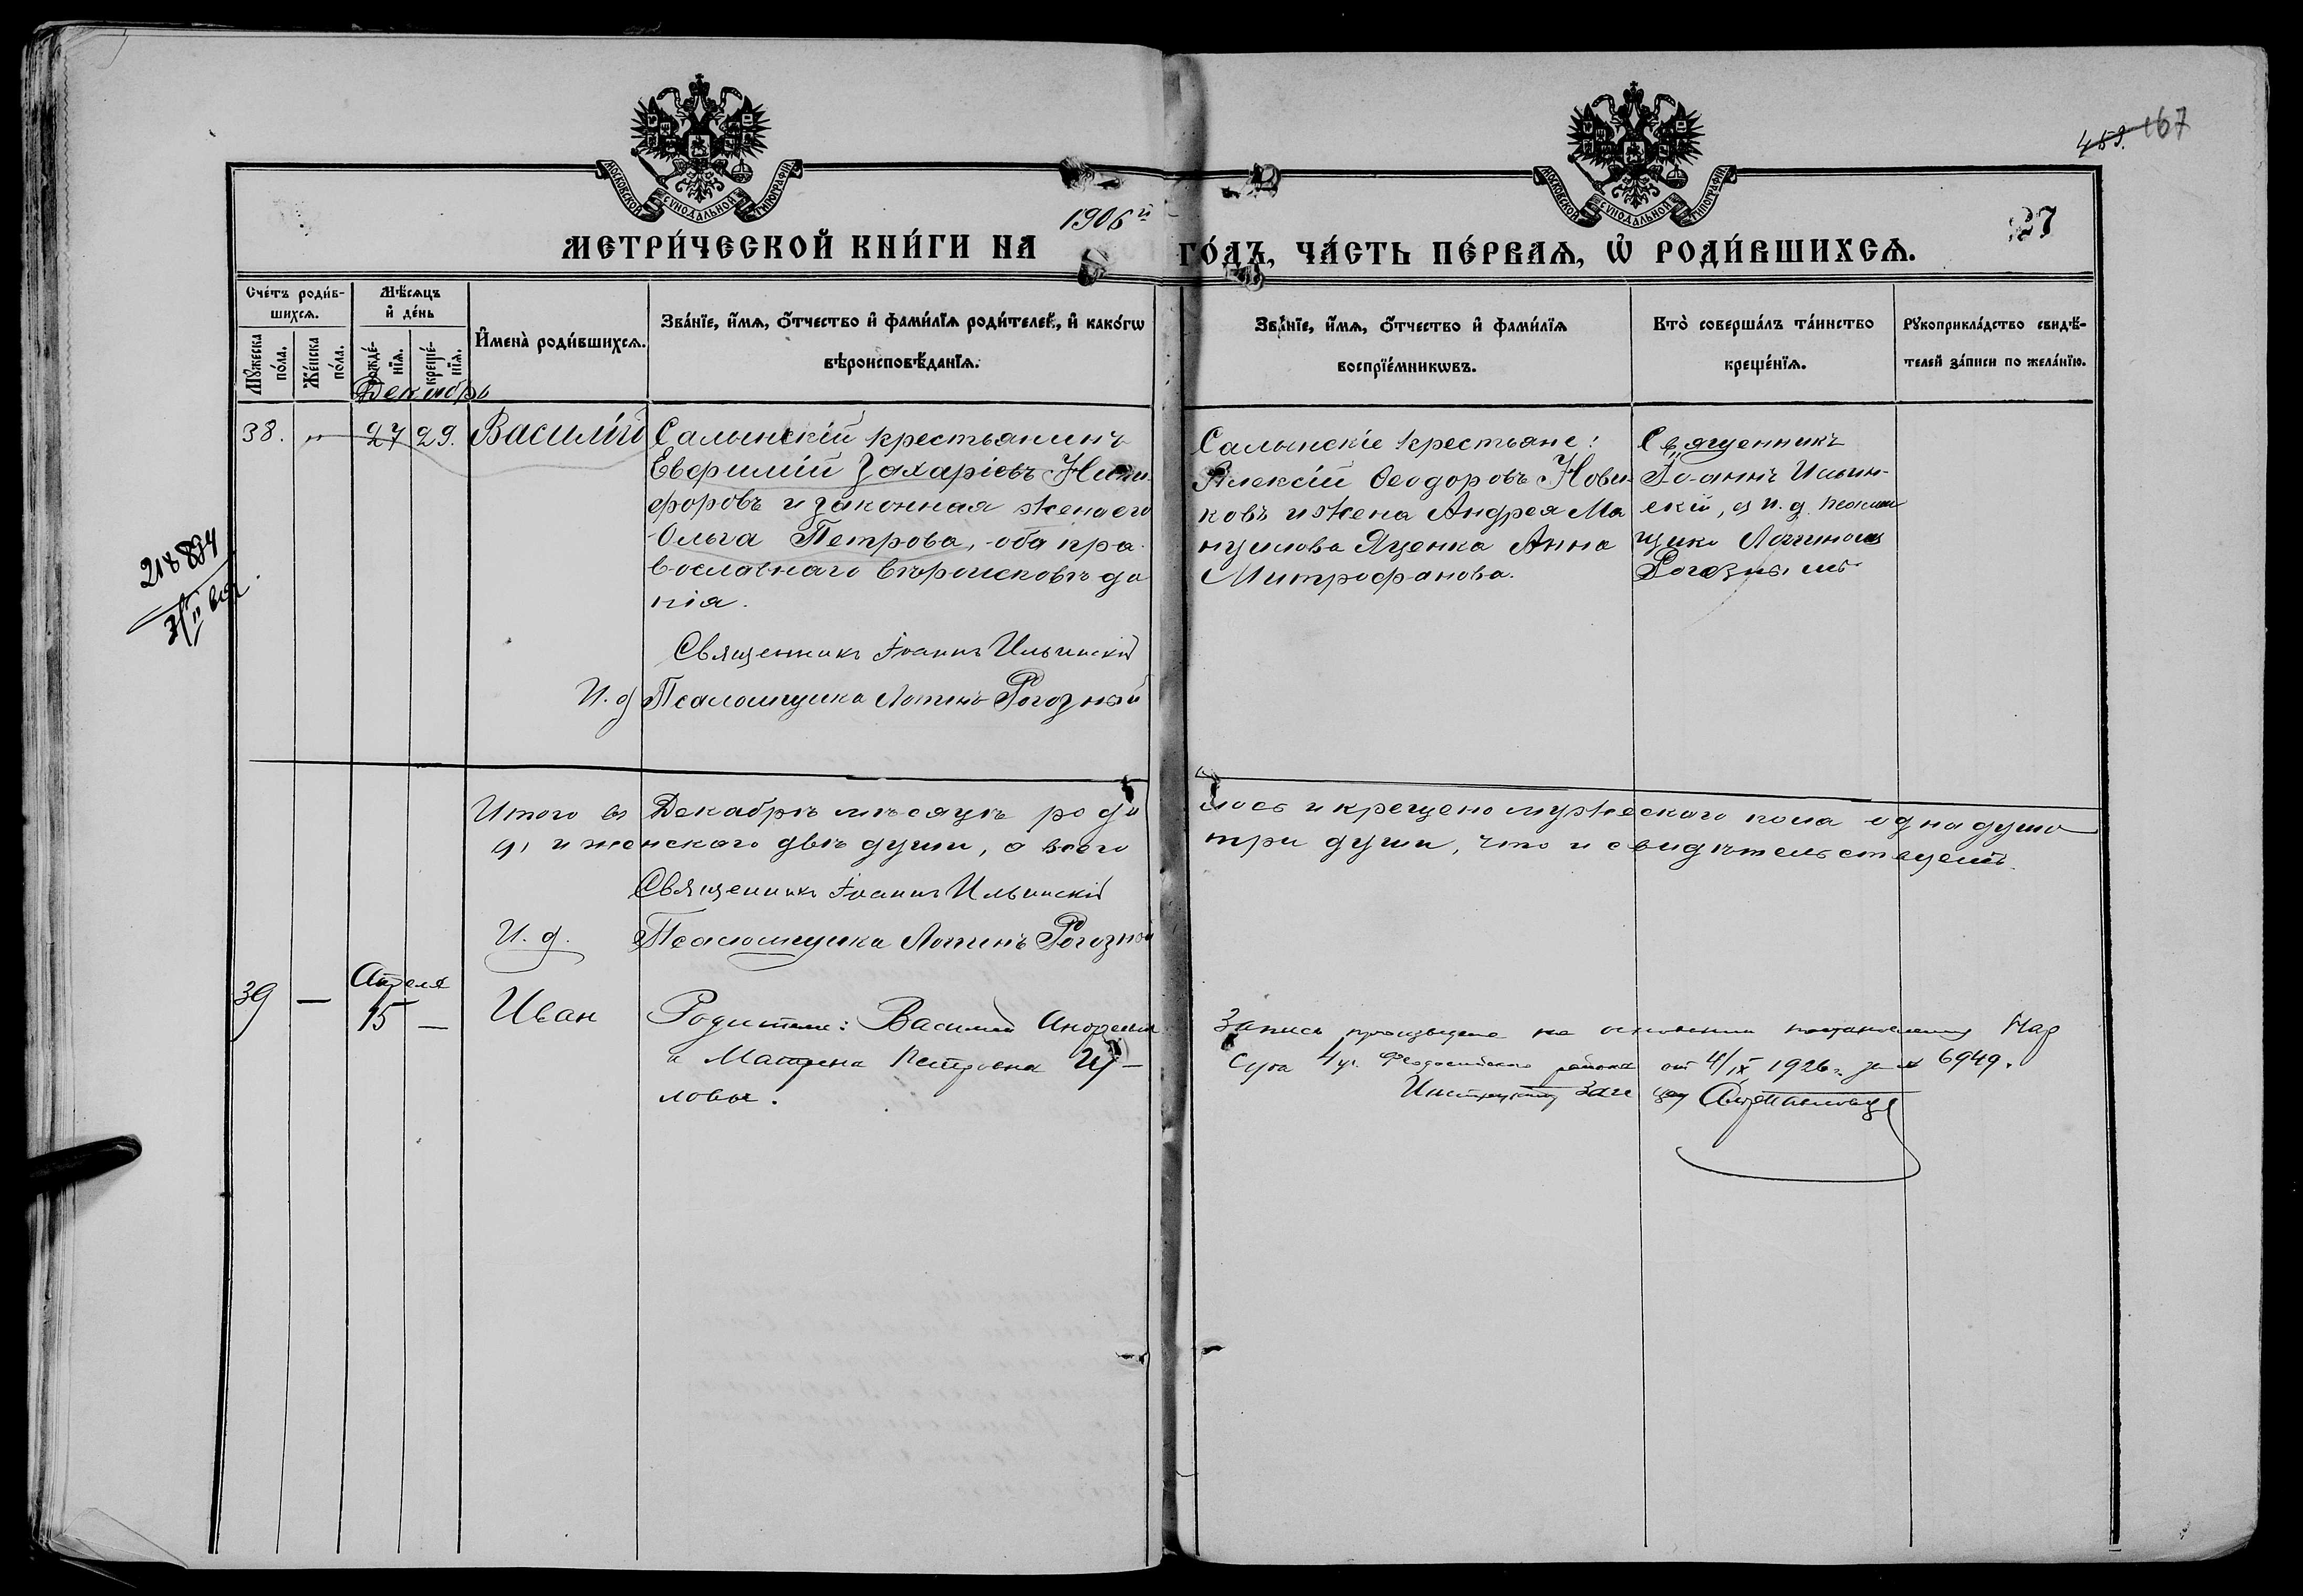 МОСКОВСКОЙ СѴНОДАЛЬНОЙ ТИПОГРАФІИ
МОСКОВСКОЙ СѴНОДАЛЬНОЙ ТИПОГРАФІИ
167
27
1906й
МЕТРИ́ЧЕСКОЙ КНИ́ГИ НА ГО́ДЪ, ЧА́СТЬ ПЕ́РВАѦ, Ѿ РОДИ́ВШИХСѦ.
Сче́тъ роди́в-
шихсѧ.
Мꙋ́жеска по́ла.
Же́нска по́ла.
Мѣ́сѧцъ
и҆ де́нь
рожде́-нїѧ.
креще́-нїѧ.
И҆мена̀ роди́вшихсѧ.
Зва́нїе, и҆́мѧ, ѻ҆́тчество и҆ фами́лїѧ роди́телей, и҆ како́гѡ
вѣроисповѣ́данїѧ.
Зва́нїе, и҆́мѧ, ѻ҆́тчество и҆ фами́лїѧ
воспрїе́мникѡвъ.
Кто̀ соверша́лъ та́инство
креще́нїѧ.
Рꙋкоприкла́дство свидѣ́-
телей за́писи по жела́нїю.
Декабрь
38. " 27 29. Василій
Салынскій крестьянинъ
Евфимій Захаріевъ Ники-
форовъ и законная жена его
Ольга Петрова, оба пра-
вославнаго вѣроисповѣда
нія.
Священникъ Іоаннъ Ильинскій
И. д. Псаломщика Логинъ Рогозный
Салынскіе крестьяне:
Алексій Ѳеодоровъ Нови-
ковъ и жена Андрея Ма
нуилова Яценка Анна
Митрофанова.
Священникъ
Іоаннъ Ильин-
скій, съ и. д. псалом
щика Логиномъ
Рогознымъ
218894
Итого въ Декабрѣ мѣсяцѣ роди лось и крещено мужескаго пола одна душа
и женскаго двѣ души, а всего три души, что и свидѣтельствуемъ.
Священникъ Іоаннъ Ильинскій
И. д. Псаломщика Логинъ Рогозный
39 — Апреля
15 — Иван
Родители: Василий Андреевич
и Матрена Петровна
ловы.
Запись произведена на основании постановления Нар
Суда 4 уч. Феодосийского района от 4/IX 1926 г. за № 6949.